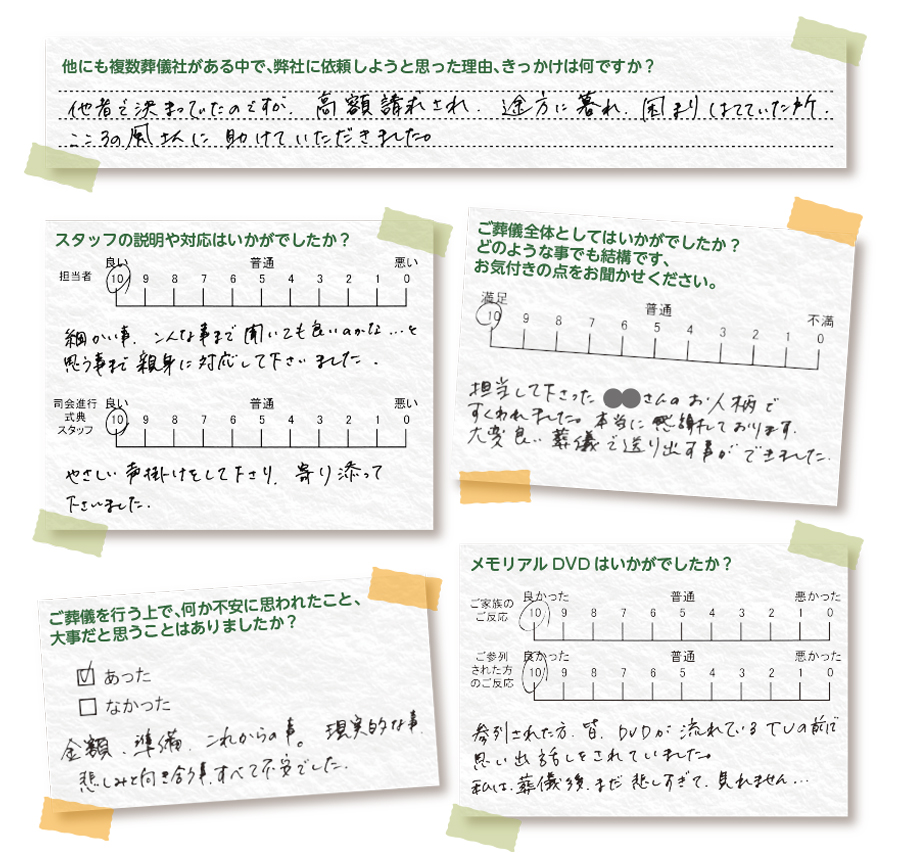 他にも複数葬儀社がある中で、弊社に依頼しようと思った理由、きっかけは何ですか？
他者で決まっていたのですが、高額請求され、途方に暮れ、困まりはてていた所、
こころの風さんに助けていただきました。
スタッフの説明や対応はいかがでしたか？
良い 普通 悪い
担当者 10 9 8 7 6 5 4 3 2 1 0
細かい事、こんな事まで聞いても良いのかな…と
思う事まで親身に対応して下さいました。
司会進行 良い 普通 悪い
式典 10 9 8 7 6 5 4 3 2 1 0
スタッフ
やさしい声掛けをして下さり、寄り添って
下さいました。
ご葬儀全体としてはいかがでしたか？
どのような事でも結構です、
お気付きの点をお聞かせください。
満足 普通 不満
10 9 8 7 6 5 4 3 2 1 0
担当して下さった●●さんのお人柄で
すくわれました。本当に感謝しております。
大変良い葬儀で送り出す事ができました。
ご葬儀を行う上で、何か不安に思われたこと、
大事だと思うことはありましたか？
あった
なかった
金額、準備、これからの事。現実的な事、
悲しみと向き合う事、すべて不安でした。
メモリアルDVDはいかがでしたか？
良かった 普通 悪かった
ご家族の 10 9 8 7 6 5 4 3 2 1 0
ご反応
ご参列 良かった 普通 悪かった
された方 10 9 8 7 6 5 4 3 2 1 0
のご反応
参列された方、皆、DVDが流れているTVの前で
思い出話しをされていました。
私は、葬儀後、まだ悲しすぎて、見れません…